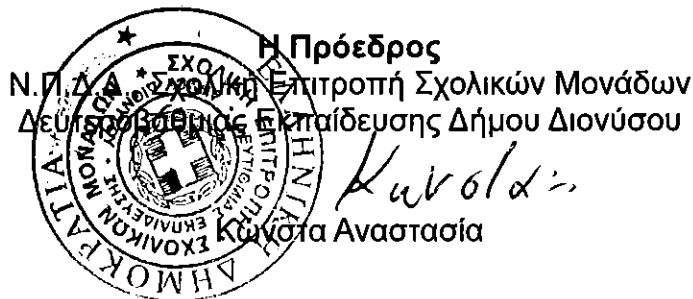 Η Πρόεδρος
Ν.Π.Δ.Δ. Σχολική Επιτροπή Σχολικών Μονάδων
Δευτεροβάθμιας Εκπαίδευσης Δήμου Διονύσου
Κώνστα Αναστασία
ΕΛΛΗΝΙΚΗ ΔΗΜΟΚΡΑΤΙΑ
ΣΧΟΛΙΚΗ ΕΠΙΤΡΟΠΗ ΣΧΟΛΙΚΩΝ ΜΟΝΑΔΩΝ
ΕΚΠΑΙΔΕΥΣΗΣ